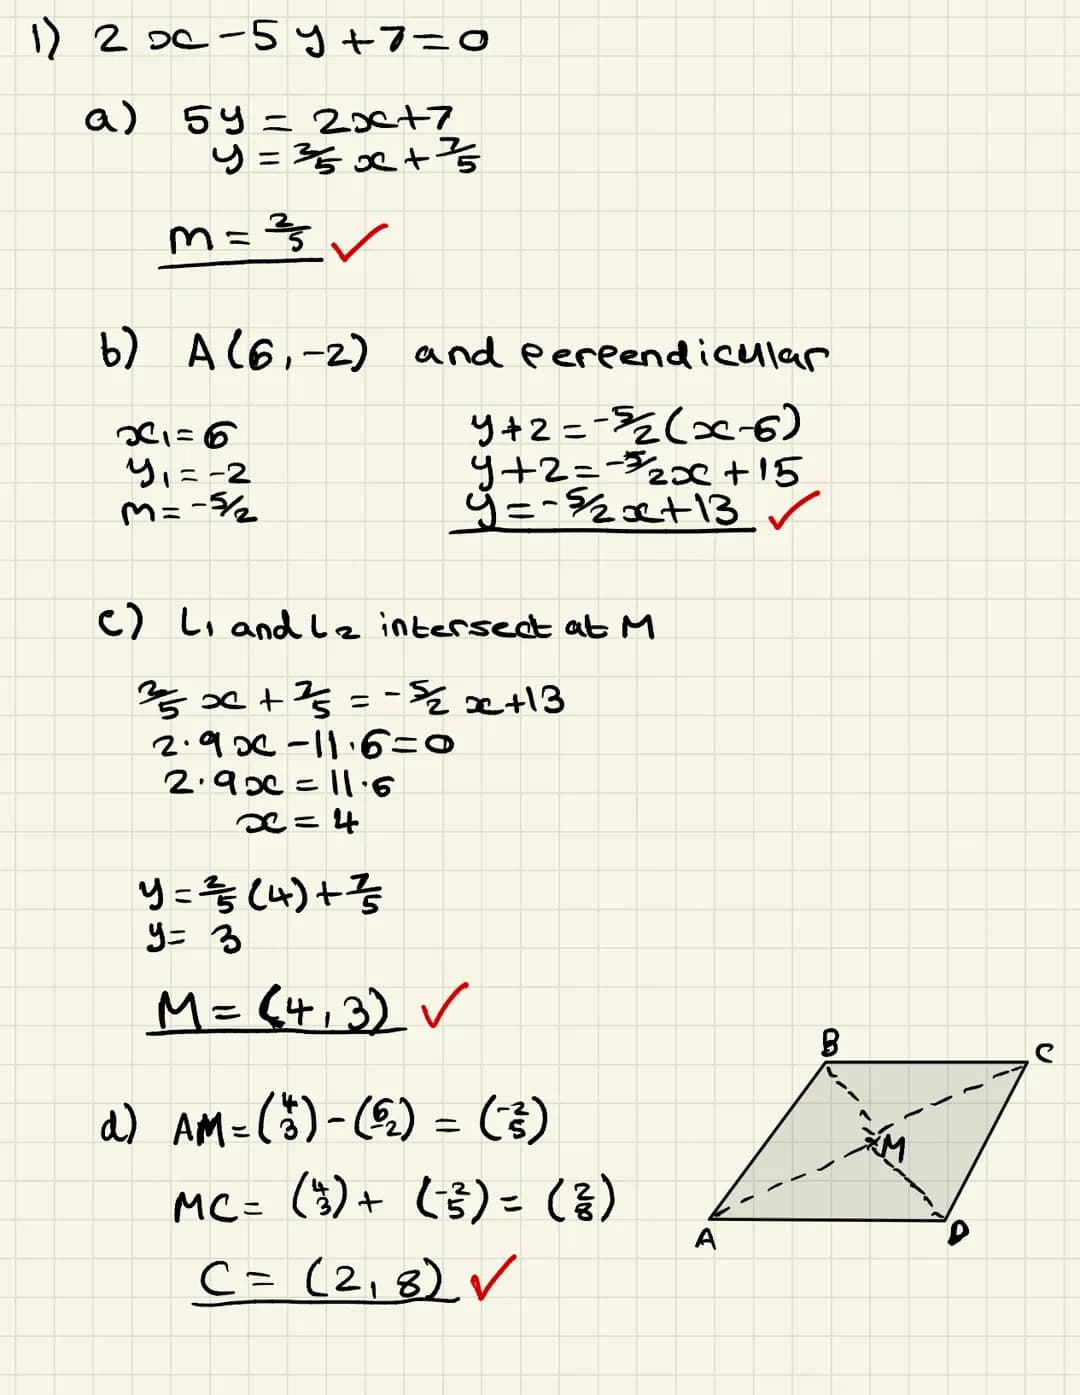 1) 2x-5y+7=0
a) 5y = 2x+7
y = 2/5 x + 7/5
m = 2/5 ✓
b) A(6,-2) and perpendicular
x₁=6
y₁=-2
m=-5/2
y+2=-5/2(x-6)
y+2=-5/2x+15
y=-5/2x+13 ✓
c) L₁ and L₂ intersect at M
2/5 x + 7/5 = -5/2 x+13
2.9x-11.6=0
2.9x=11.6
x=4
y=2/5(4)+7/5
y=3
M=(4,3) ✓
d) AM=(4 3)-(6 -2)=(-2 5)
MC=(4 3)+(-2 5)=(2 8)
C=(2,8) ✓
B
C
M
A
D